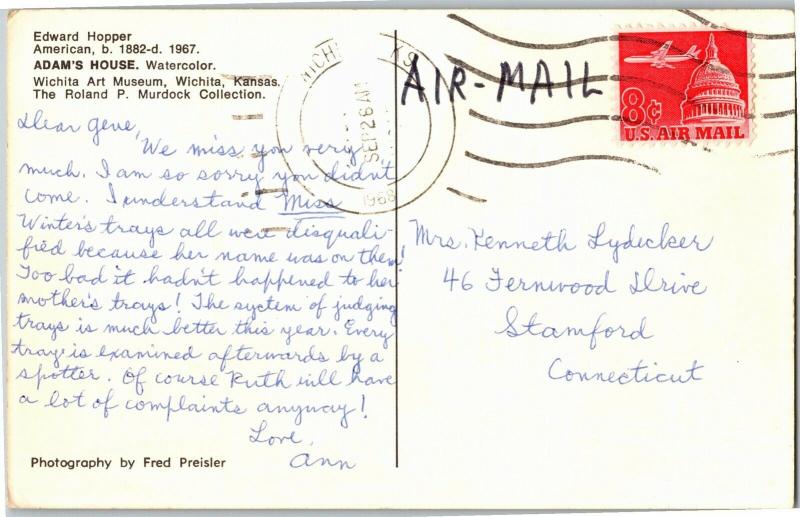 Edward Hopper
American, b. 1882-d. 1967.
ADAM'S HOUSE. Watercolor.
Wichita Art Museum, Wichita, Kansas.
The Roland P. Murdock Collection.
Dear Gene,
We miss you very
much. I am so sorry you didn't
come. I understand Miss
Winter's trays all were disquali-
fied because her name was on them!
Too bad it hadn't happened to her
mother's trays! The system of judging
trays is much better this year. Every
tray is examined afterwards by a
spotter. Of course Ruth will have
a lot of complaints anyway!
Love,
Ann
Photography by Fred Preisler
SEP 26 AM
1968
AIR-MAIL
8¢
U.S. AIR MAIL
Mrs. Kenneth Lydecker
46 Fernwood Drive
Stamford
Connecticut